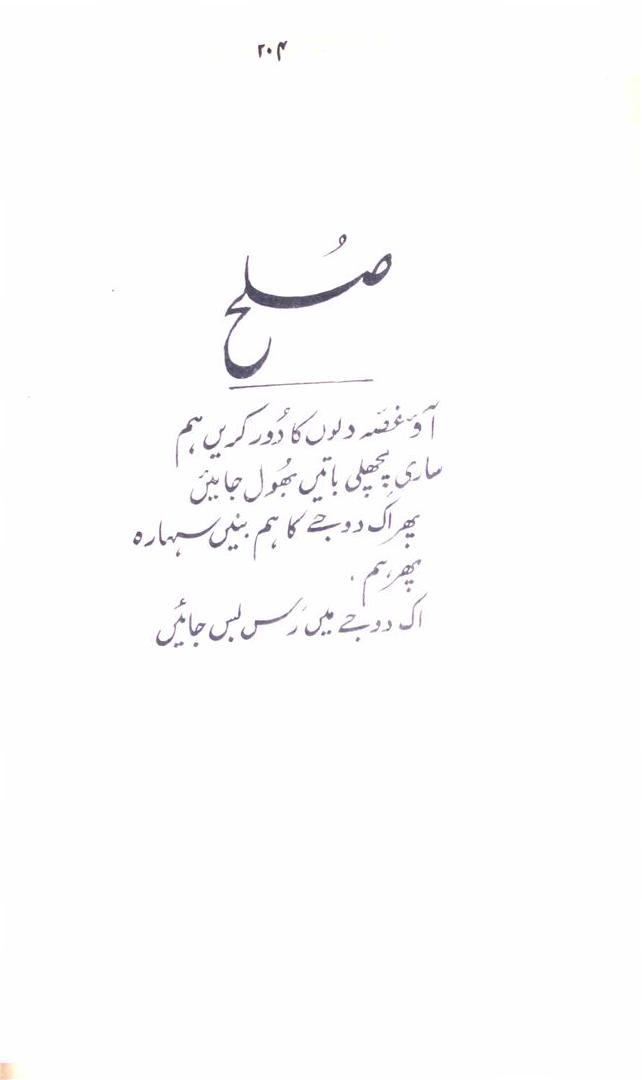 ۲۰۴
صُلح
آؤ غصّہ دلوں کا دُور کریں ہم
ساری پچھلی باتیں بھُول جائیں
پھر اک دوجے کا ہم بنیں سہارہ
پھر ہم
اک دوجے میں رَس بس جائیں